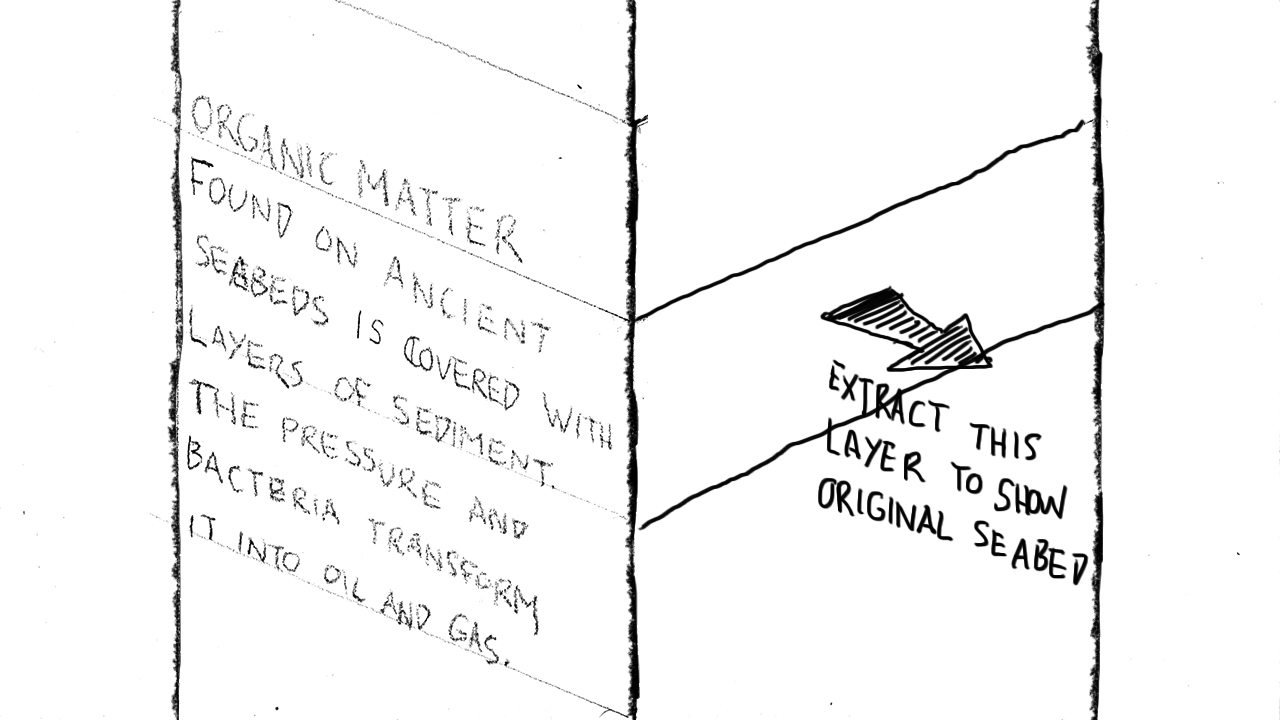 ORGANIC MATTER
FOUND ON ANCIENT
SEABEDS IS COVERED WITH
LAYERS OF SEDIMENT.
THE PRESSURE AND
BACTERIA TRANSFORM
IT INTO OIL AND GAS.
EXTRACT THIS
LAYER TO SHOW
ORIGINAL SEABED